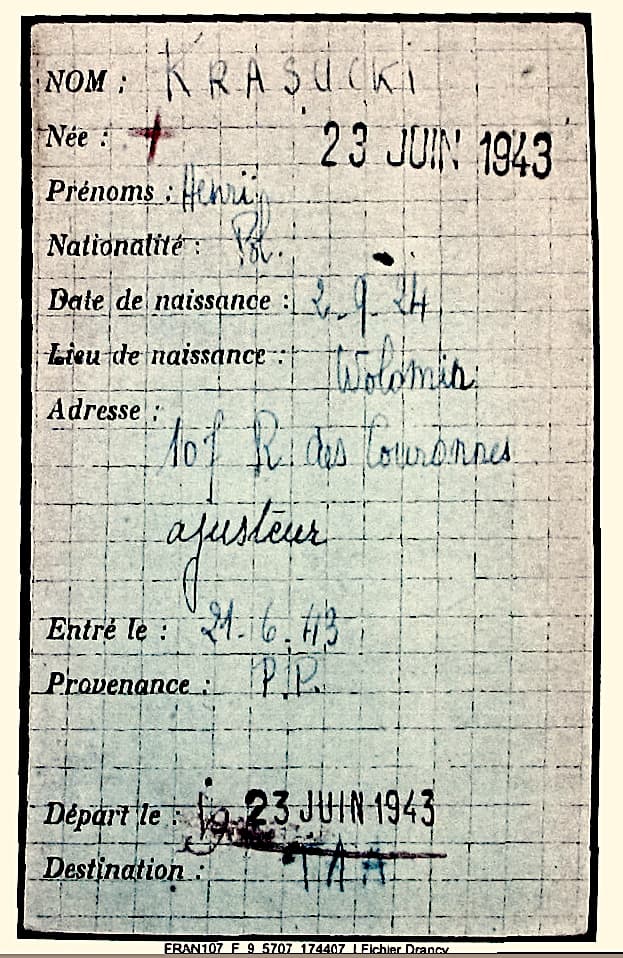 NOM : KRASUCKI
Née :
23 JUIN 1943
Prénoms : Henri
Nationalité : Pol.
Date de naissance : 2.9.24
Lieu de naissance : Wolomin
Adresse :
107 R. des Couronnes
ajusteur
Entré le : 21.6.43
Provenance : P.P.
Départ le : 23 JUIN 1943
Destination :
FRAN107_F_9_5707_174407_L Fichier Drancy